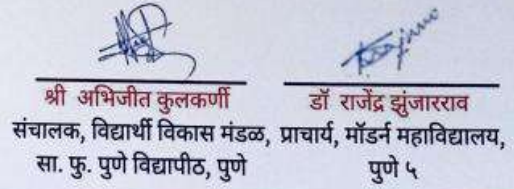 श्री अभिजीत कुलकर्णी
संचालक, विद्यार्थी विकास मंडळ,
सा. फु. पुणे विद्यापीठ, पुणे
डॉ राजेंद्र झुंजारराव
प्राचार्य, मॉडर्न महाविद्यालय,
पुणे ५